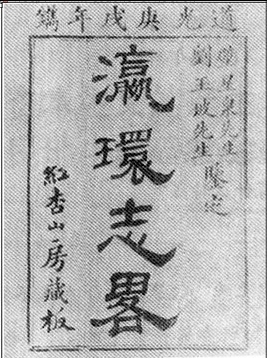 道光庚戌年鐫
璧星泉先生
劉玉坡先生
鑒定
瀛環志畧
紅杏山房藏板